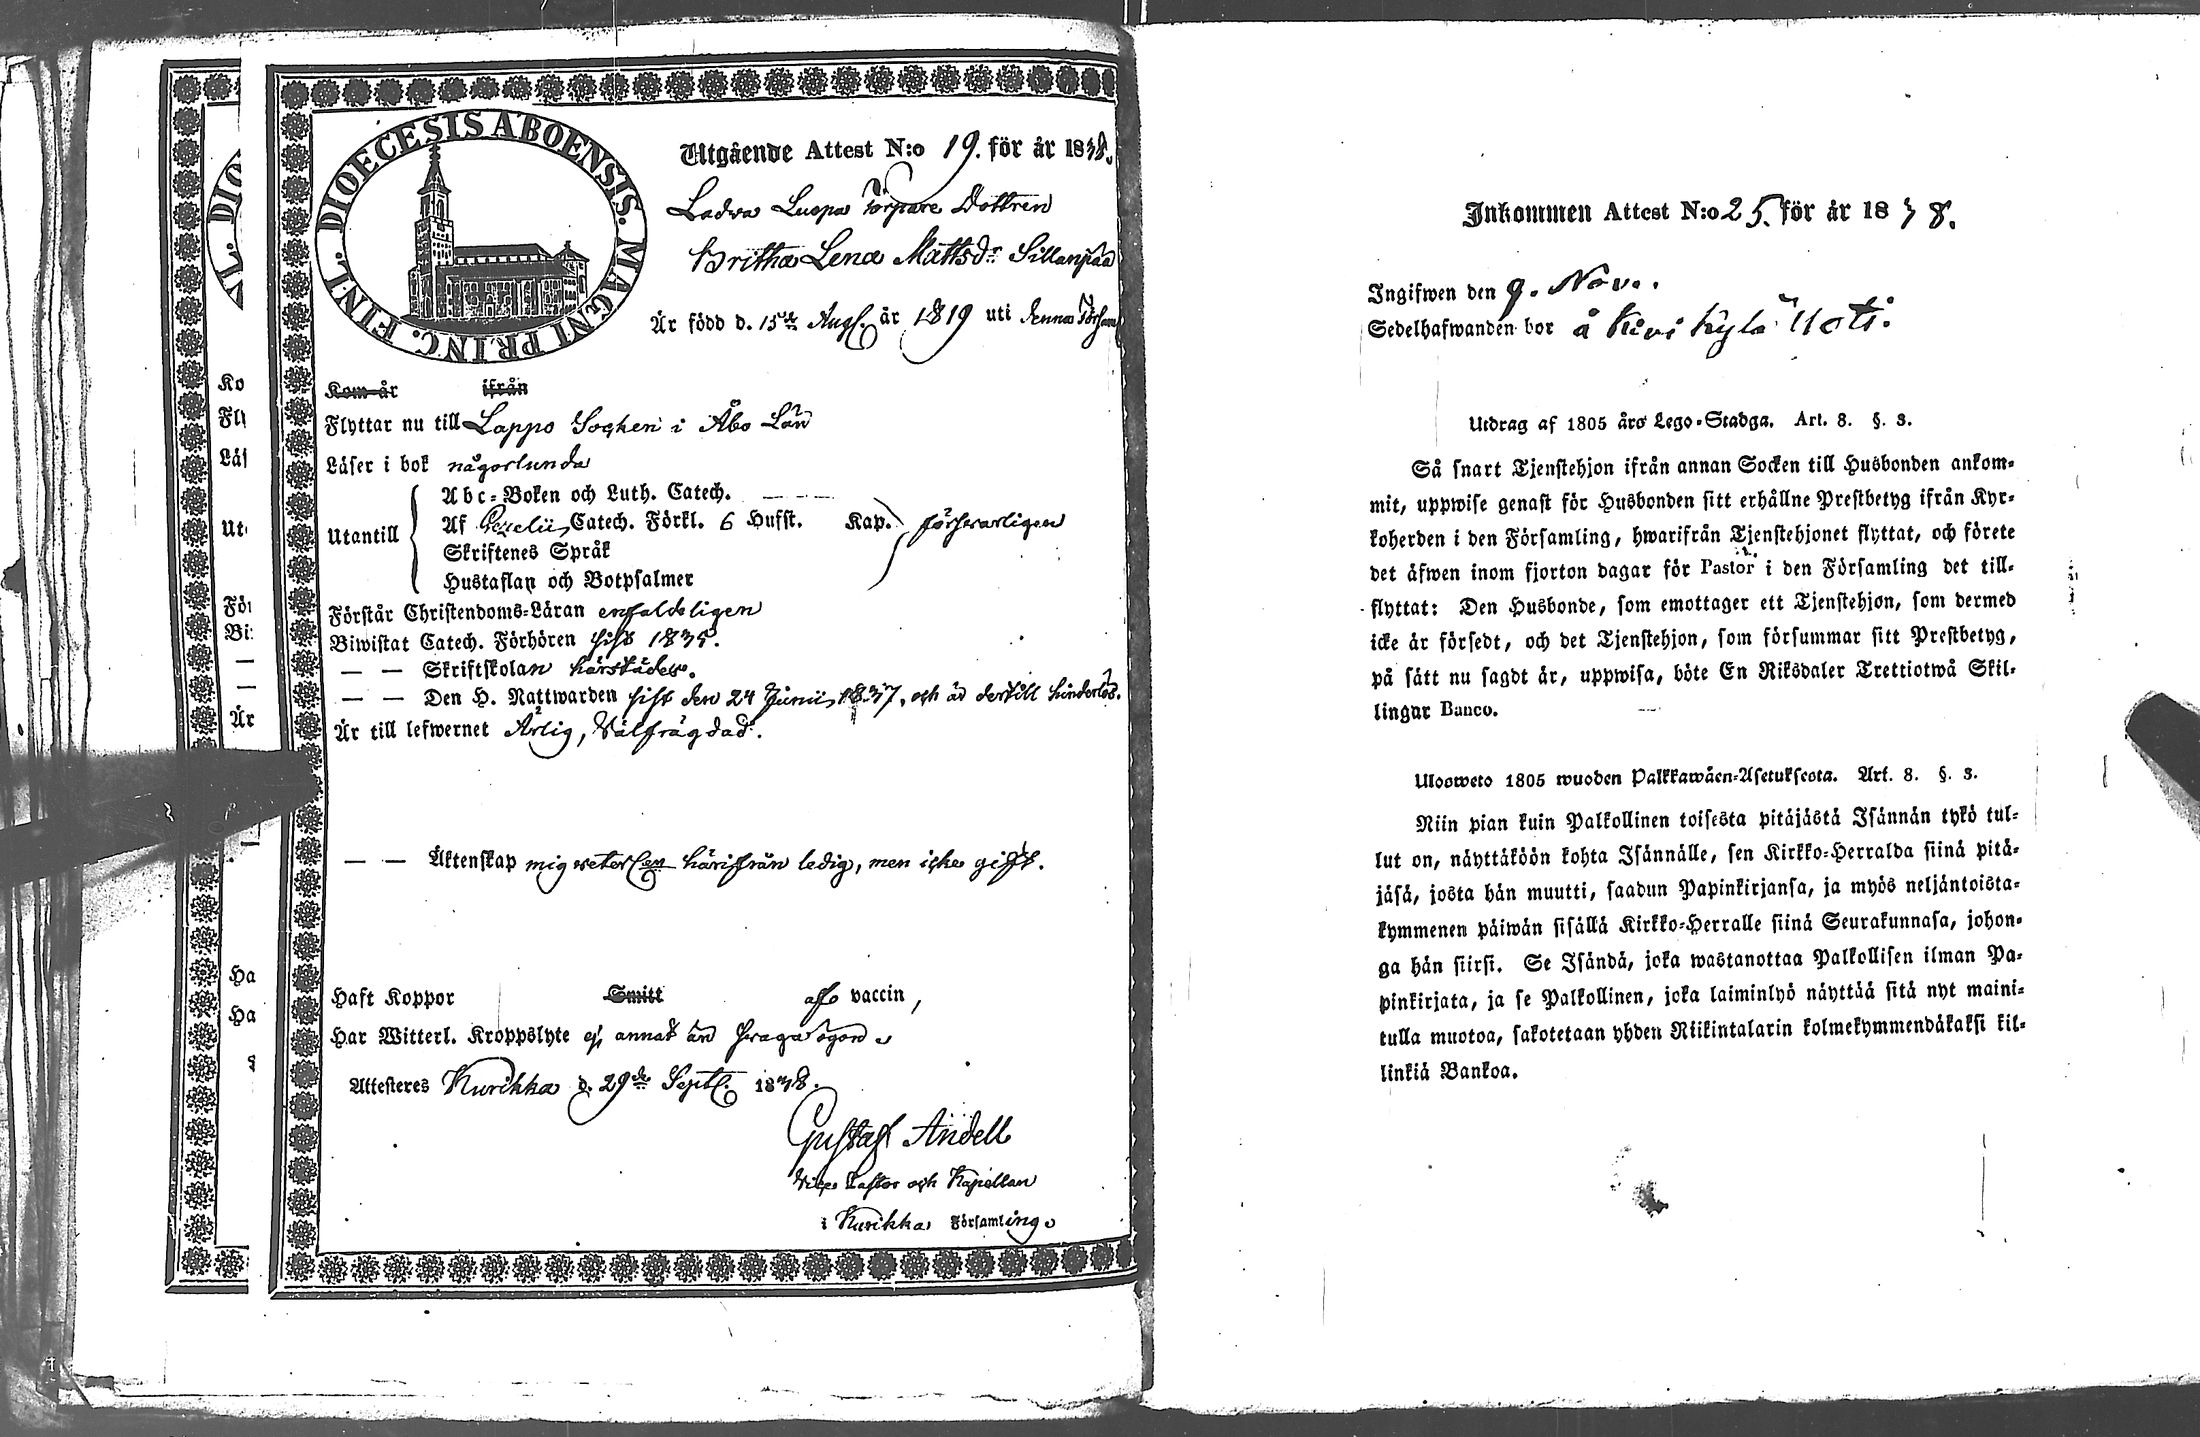 DIOECESIS ABOENSIS. MAGNI PRINC. FINL.
Utgående Attest N:o 19. för år 1838.
Ladva Luopa Torpare Dottren
Britha Lena Mattsdr Sillanpää
Är född d. 15de Aug. år 1819 uti denna Försam
Kom år ifrån
Flyttar nu till Lappo Sochen i Åbo Län
Läser i bok någorlunda
Utantill
Abc-Boken och Luth. Catech.
Af Gezelii Catech. Förkl. 6 Hufst. Kap. försvarligen
Skriftenes Språk
Hustaflan och Botpsalmer
Förstår Christendoms-Läran enfaldeligen
Biwistat Catech. Förhören sist 1835.
— — Skriftskolan härstädes.
— — Den H. Nattwarden sist den 24 Junii 1837, och är dertill hinderlös.
Är till lefwernet Ärlig, Välfrägdad.
— — Äktenskap mig veterl.en härifrån ledig, men icke gift.
Haft Koppor Smitt afso vaccin,
Har Witterl. Kroppslyte ej annat än svaga ögon
Attesteres Kurikka d. 29de Sept. 1838.
Gustaf Andell
Vice Pastor och Kapellan
i Kurikka Församling
Ko
Fly
Läs
Ut
För
Bi
—
—
Är
—
Ha
Ha
Inkommen Attest N:o 25. för år 1838.
Ingifwen den 9. Nov.
Sedelhafwanden bor å Kivikylä Uoti.
Utdrag af 1805 års Lego-Stadga. Art. 8. §. 3.
Så snart Tjenstehjon ifrån annan Socken till Husbonden ankom-
mit, uppwise genast för Husbonden sitt erhållne Prestbetyg ifrån Kyr-
koherden i den Församling, hwarifrån Tjenstehjonet flyttat, och förete
det äfwen inom fjorton dagar för Pastor i den Församling det till-
flyttat: Den Husbonde, som emottager ett Tjenstehjon, som dermed
icke är försedt, och det Tjenstehjon, som försummar sitt Prestbetyg,
på sätt nu sagdt är, uppwisa, böte En Riksdaler Trettiotwå Skil-
lingar Banco.
Ulosweto 1805 wuoden Palkkawäen-Asetuksesta. Art. 8. §. 3.
Niin pian kuin Palkollinen toisesta pitäjästä Isännän tykö tul-
lut on, näyttäköön kohta Isännälle, sen Kirkko-Herralda siinä pitä-
jäsä, josta hän muutti, saadun Papinkirjansa, ja myös neljäntoista-
kymmenen päiwän sisällä Kirkko-Herralle siinä Seurakunnasa, johon-
ga hän siirsi. Se Isändä, joka wastanottaa Palkollisen ilman Pa-
pinkirjata, ja se Palkollinen, joka laiminlyö näyttää sitä nyt maini-
tulla muotoa, sakotetaan yhden Riikintalarin kolmekymmendäkaksi kil-
linkiä Bankoa.